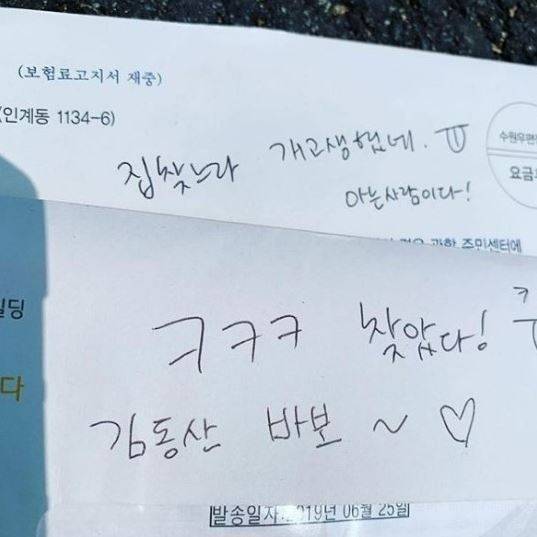 (보험료고지서 재중)
(인계동 1134-6)
수원우편
요금
집찾느라 개고생했네. ㅠ
아는사람이다!
주민센터에
딩
다
ㅋㅋㅋ 찾았다!
김동산 바보 ~ ♡
발송일자:2019년 06월 25일